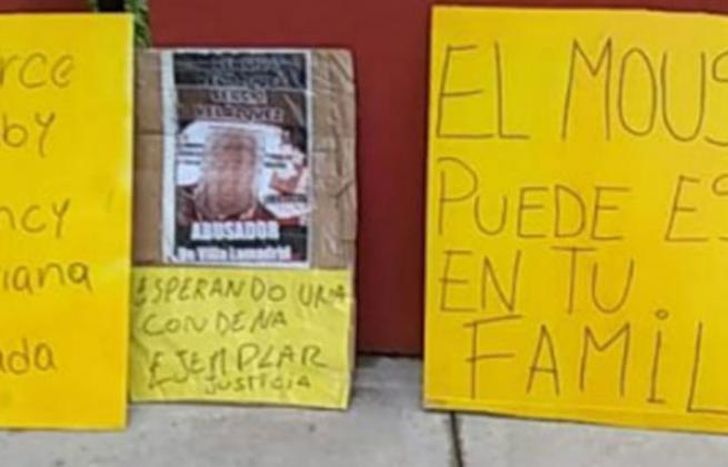 rce
by
ncy
iana
ada
SERGIO
VELAZQUEZ
ABUSADOR
De Villa Lamadrid
ESPERANDO UNA
CONDENA
EJEMPLAR
JUSTICIA
EL MOUS
PUEDE ES
EN TU
FAMIL